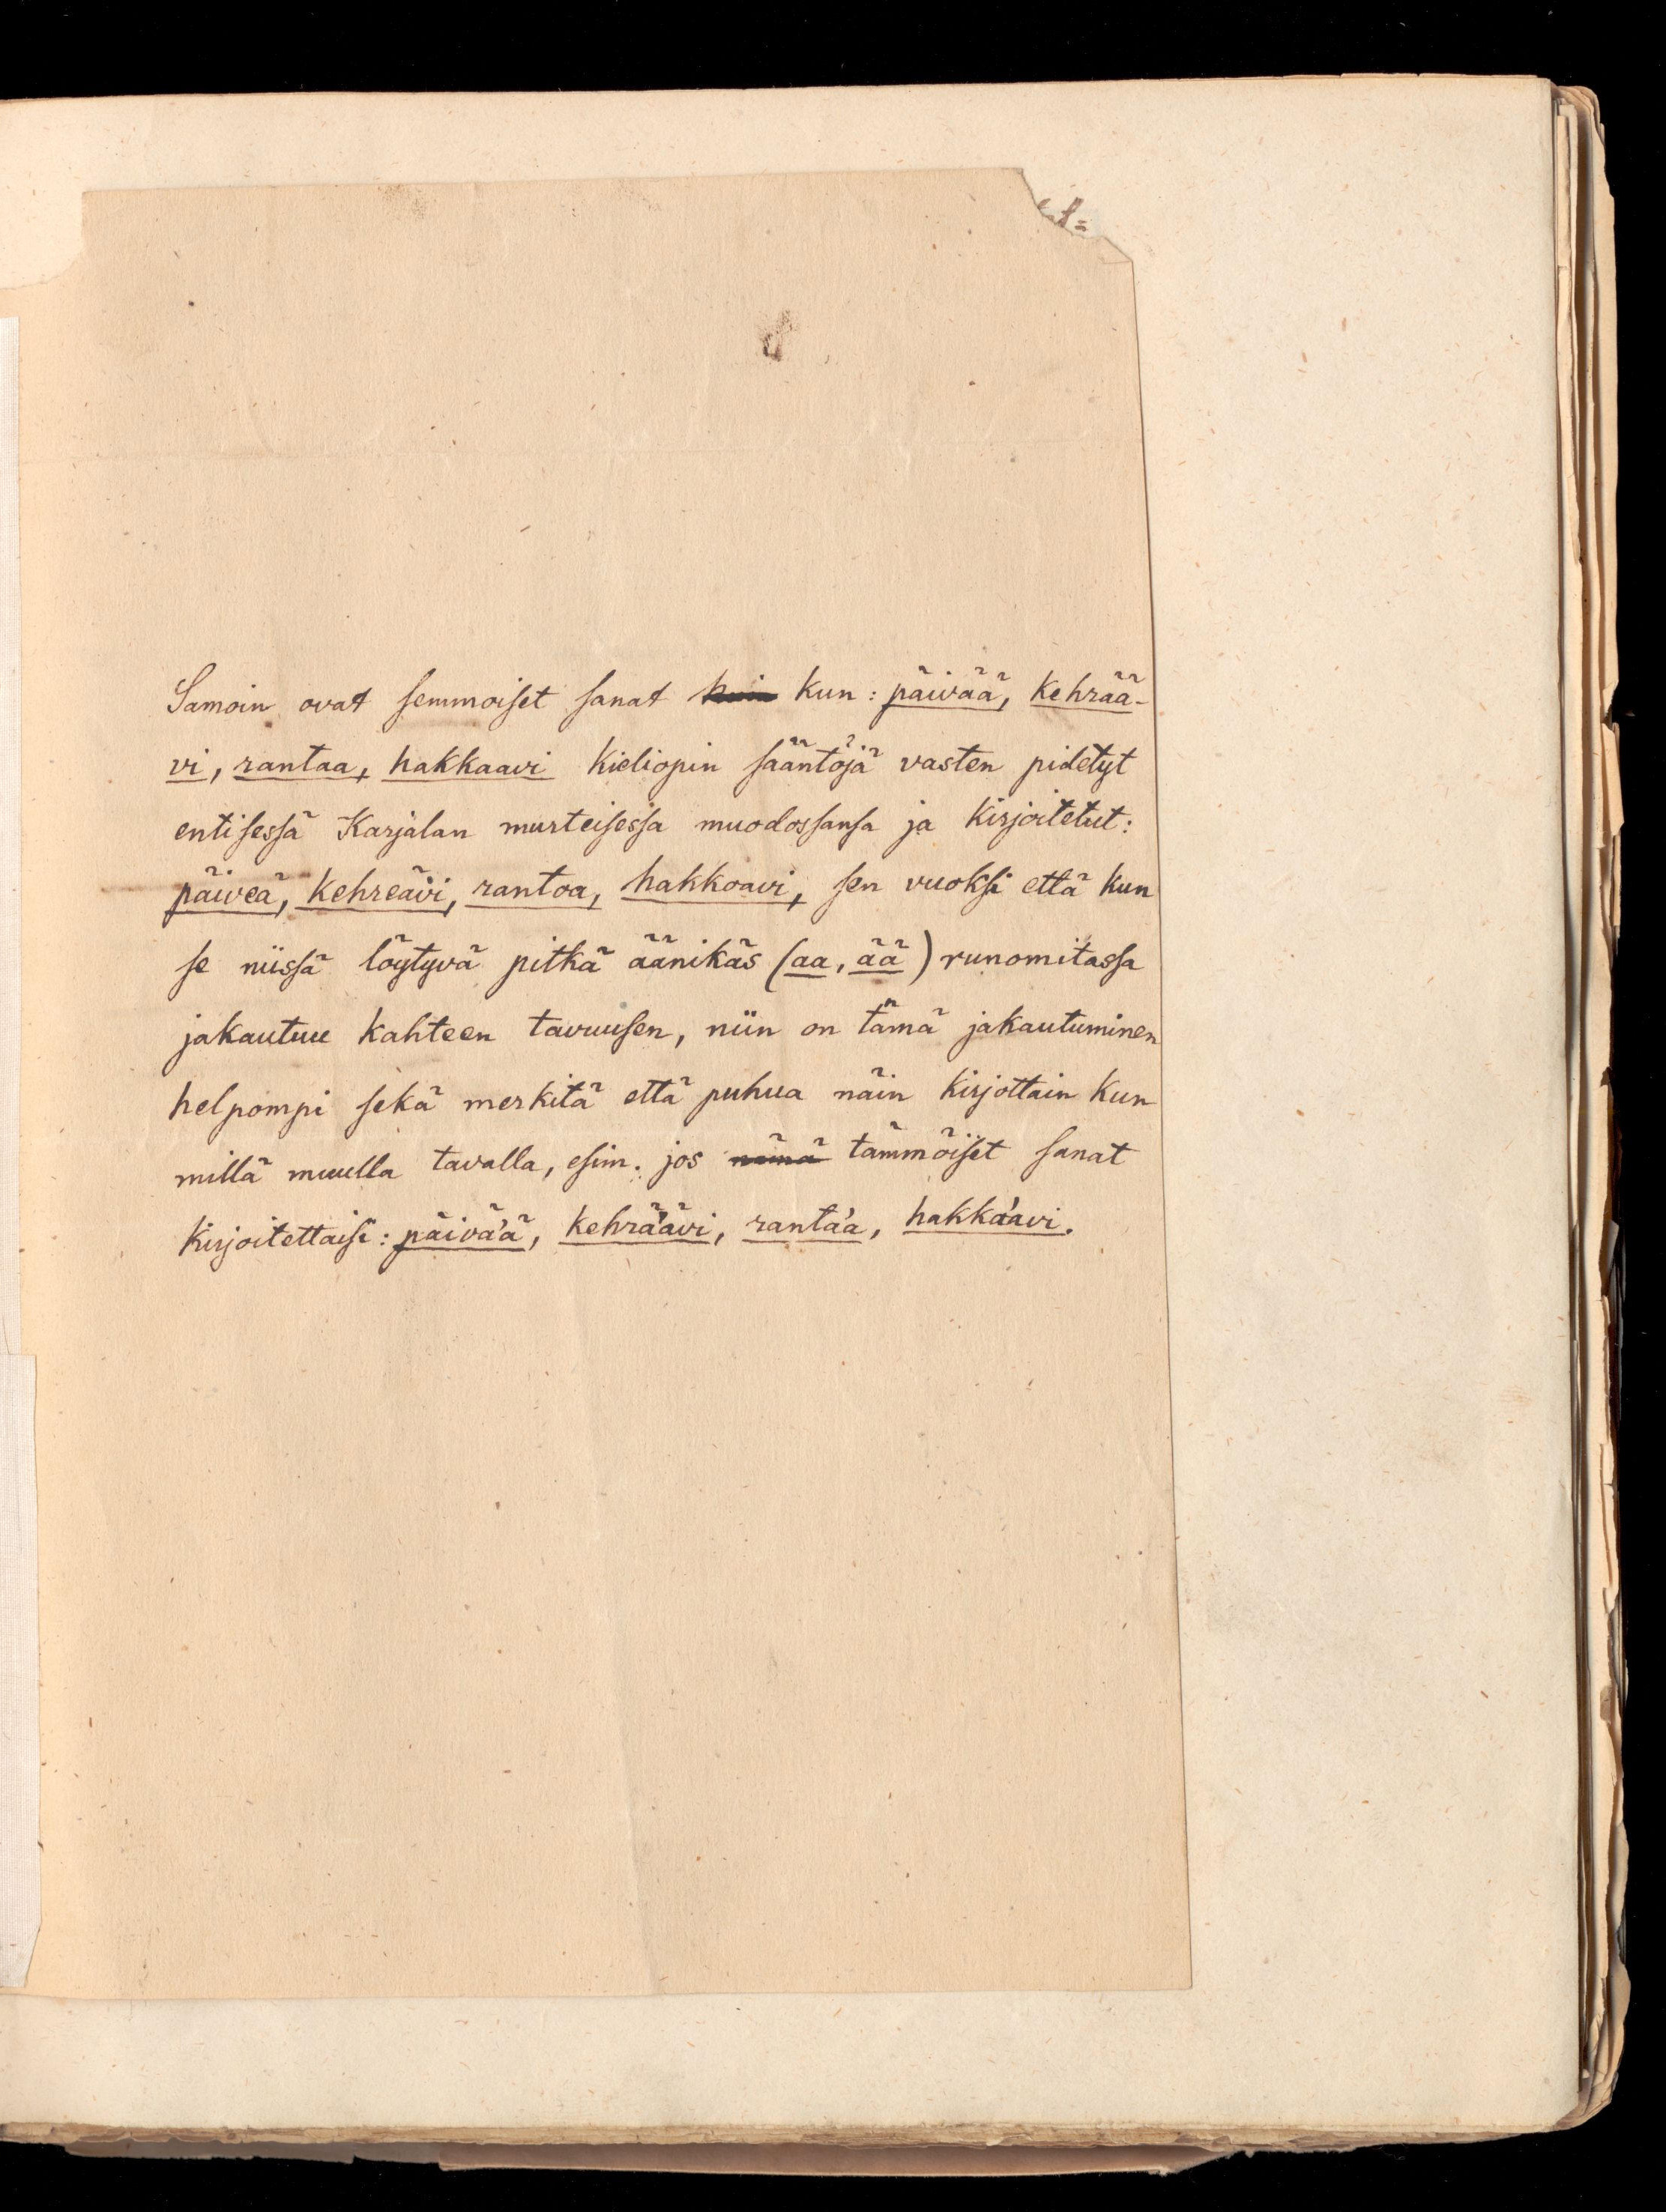 Samoin ovat semmoiset sanat kuin kun: päivää, kehrää-
vi, rantaa, hakkaavi kieliopin sääntöjä vasten pidetyt
entisessä Karjalan murteisessa muodossansa ja kirjoitetut:
päiveä, kehreävi, rantoa, hakkoavi, sen vuoksi että kun
se niissä löytyvä pitkä äänikäs (aa, ää) runomitassa
jakautuu kahteen tavuusen, niin on tämä jakautuminen
helpompi sekä merkitä että puhua näin kirjottain kun
millä muulla tavalla, esim. jos nämä tämmöiset sanat
kirjoitettaisi: päivä'ä, kehrä'ävi, ranta'a, hakka'avi.